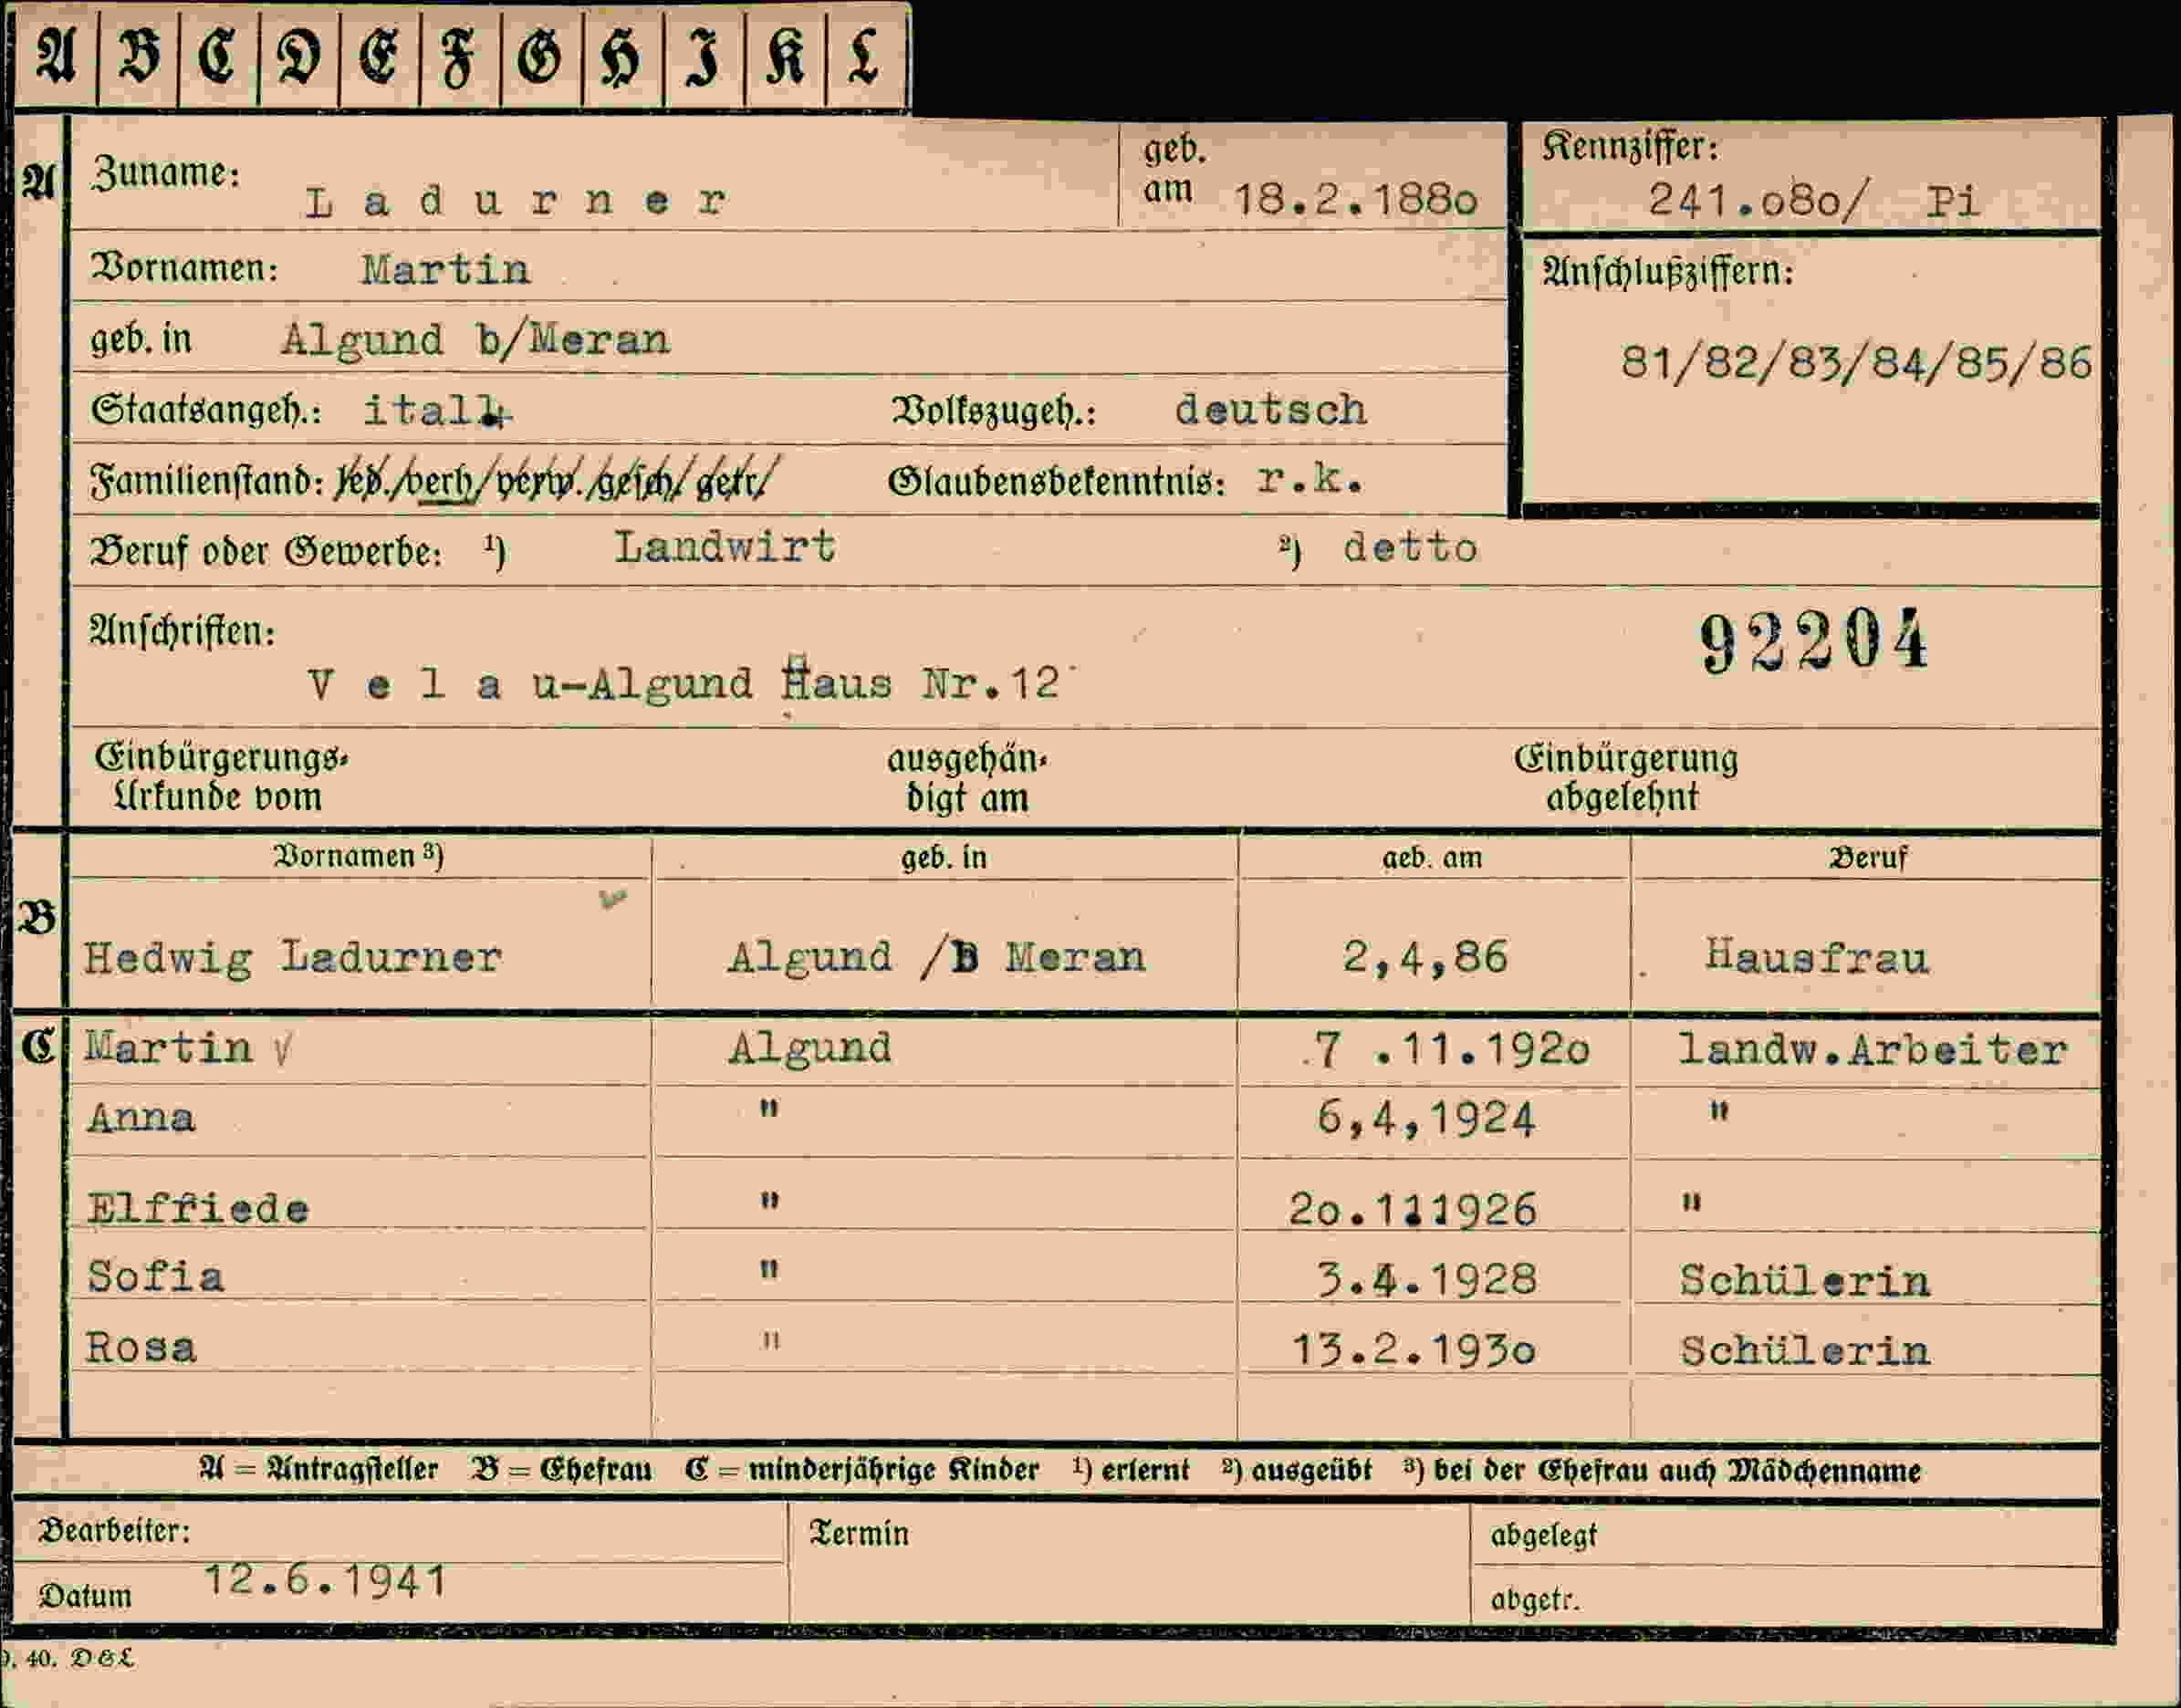 A B C D E F G H I K L
A Zuname: Ladurner geb. am 18.2.1880 Kennziffer: 241.080/ Pi
Vornamen: Martin Anschlußziffern:
geb. in Algund b/Meran 81/82/83/84/85/86
Staatsangeh.: ital. Volkszugeh.: deutsch
Familienstand: led./verh/verw./gesch/getr/ Glaubensbekenntnis: r.k.
Beruf oder Gewerbe: ¹) Landwirt ²) detto
Anschriften: 92204
V e l a u-Algund Haus Nr.12
Einbürgerungs- ausgehän- Einbürgerung
Urkunde vom digt am abgelehnt
Vornamen ³) geb. in geb. am Beruf
B Hedwig Ladurner Algund /B Meran 2,4,86 Hausfrau
C Martin √ Algund 7 .11.1920 landw.Arbeiter
Anna " 6,4,1924 "
Elfriede " 20.111926 "
Sofia " 3.4.1928 Schülerin
Rosa " 13.2.1930 Schülerin
A = Antragsteller B = Ehefrau C = minderjährige Kinder ¹) erlernt ²) ausgeübt ³) bei der Ehefrau auch Mädchenname
Bearbeiter: Termin abgelegt
Datum 12.6.1941 abgetr.
40. D&L